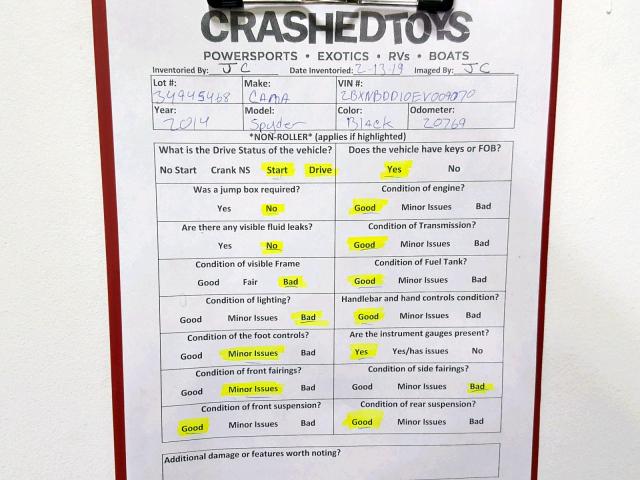 CRASHEDTOYS
POWERSPORTS • EXOTICS • RVs • BOATS
Inventoried By: JC Date Inventoried: 2-13-19 Imaged By: JC
Lot #: Make: VIN #:
34945468 CAMA 2BXNBDD10EV009070
Year: Model: Color: Odometer:
2014 Spyder Black 20769
*NON-ROLLER* (applies if highlighted)
What is the Drive Status of the vehicle? Does the vehicle have keys or FOB?
No Start Crank NS Start Drive Yes No
Was a jump box required? Condition of engine?
Yes No Good Minor Issues Bad
Are there any visible fluid leaks? Condition of Transmission?
Yes No Good Minor Issues Bad
Condition of visible Frame Condition of Fuel Tank?
Good Fair Bad Good Minor Issues Bad
Condition of lighting? Handlebar and hand controls condition?
Good Minor Issues Bad Good Minor Issues Bad
Condition of the foot controls? Are the instrument gauges present?
Good Minor Issues Bad Yes Yes/has issues No
Condition of front fairings? Condition of side fairings?
Good Minor Issues Bad Good Minor Issues Bad
Condition of front suspension? Condition of rear suspension?
Good Minor Issues Bad Good Minor Issues Bad
Additional damage or features worth noting?